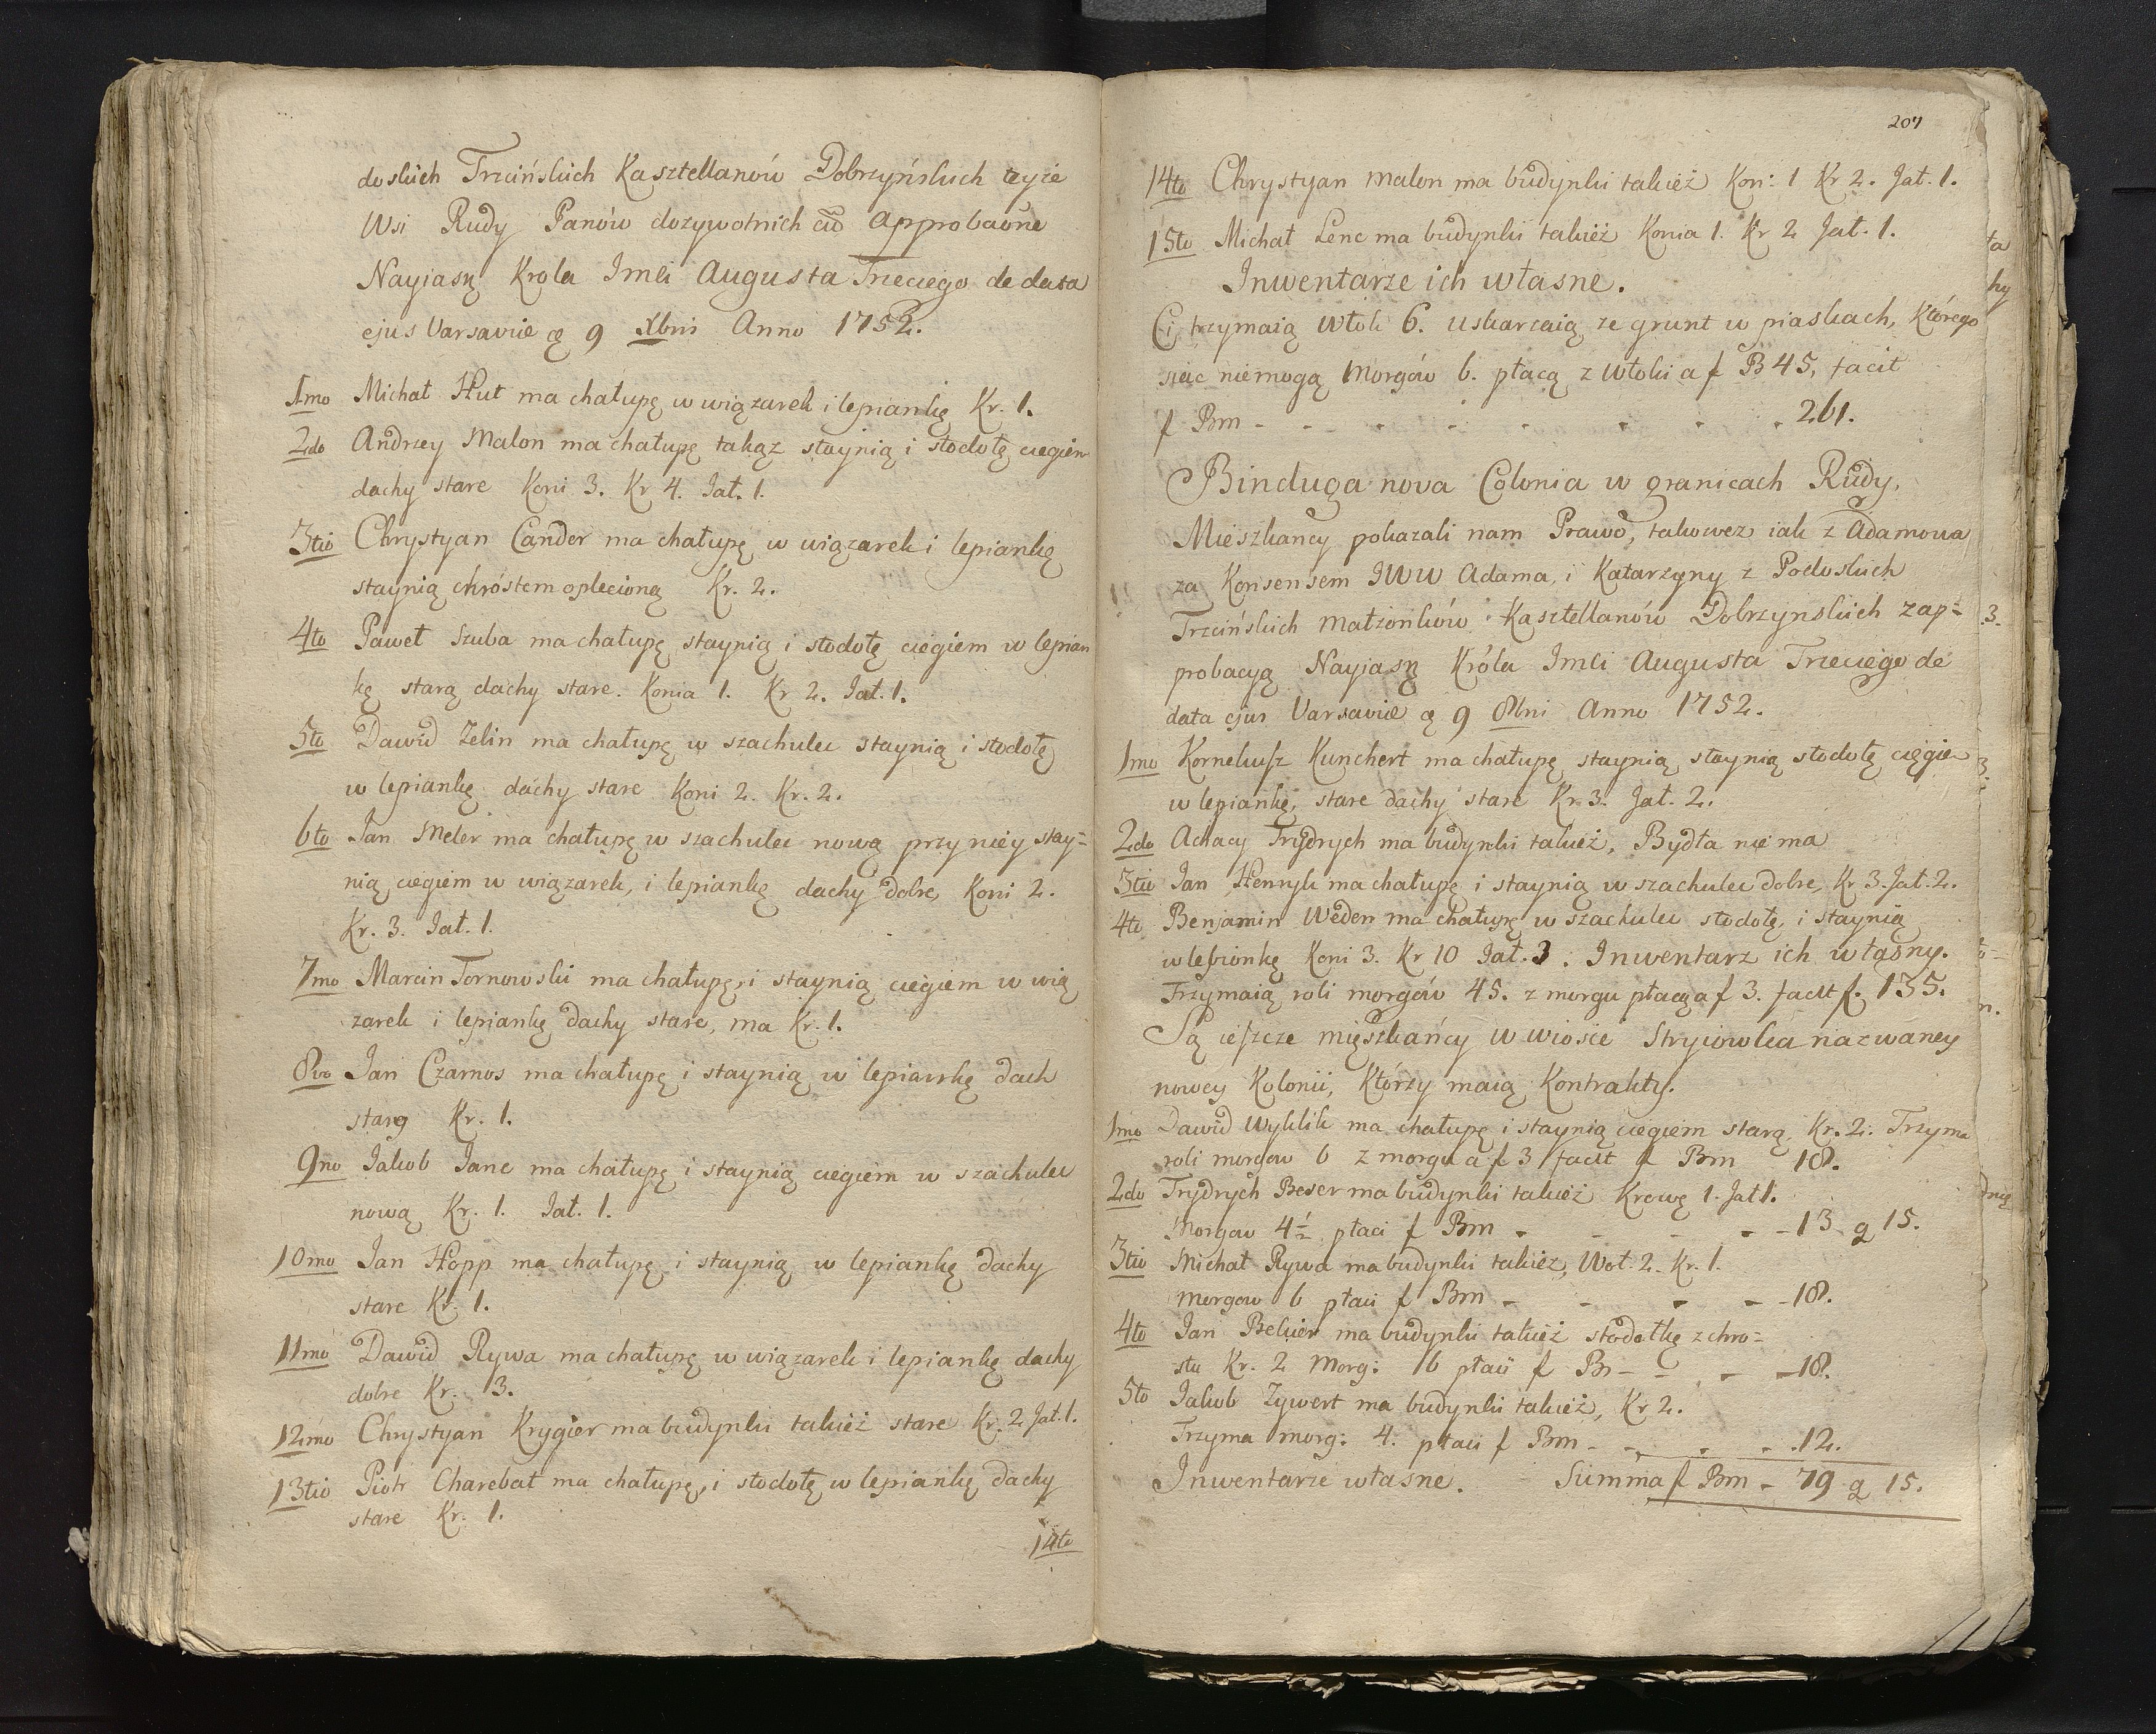 doskich Trzcińskich Kasztellanów Dobrzyńskich teyże
Wsi Rudy Panów dozywotnich cũ approbaõne
Nayiasz Krola Imci Augusta Trzeciego de data
ejus Varsaviæ 9 Xbris Anno 1752.
1mo Michał Hut ma chałupę w wiązarek i lepiankę Kr. 1.
2do Andrzey Malon ma chałupę takąz staynią i stodołę ciegiem
dachy stare Koni 3. Kr 4. Jał. 1.
3tio Chrystyan Cander ma chałupę w wiązarek i lepiankę
staynią chróstem oplecioną Kr. 2.
4to Paweł Szuba ma chałupę staynią i stodołę ciegiem w lepian
kę starą dachy stare. Konia 1. Kr 2. Jał. 1.
5to Dawid Zelin ma chałupę w szachulec staynią i stodołę
w lepiankę dachy stare Koni 2. Kr. 2.
6to Jan Meler ma chałupę w szachulec nową przy niey stay=
nią ciegiem w wiązarek, i lepiankę dachy dobre, Koni 2.
Kr. 3. Jał. 1.
7mo Marcin Tornowski ma chałupę, i staynią ciegiem w wią
zarek i lepiankę dachy stare, ma Kr. 1.
8vo Jan Czarnos ma chałupę i staynią w lepiankę dach
stary Kr. 1.
9no Jakob Janc ma chałupę i staynią ciegiem w szachulec
nową Kr. 1. Jał. 1.
10mo Jan Hopp ma chałupę i staynią w lepiankę dachy
stare Kr. 1.
11mo Dawid Rywa ma chałupę w wiązarek i lepiankę dachy
dobre Kr. 3.
12mo Chrystyan Krygier ma budynki takież stare Kr. 2 Jał. 1.
13tio Piotr Charebat ma chałupę, i stodołę w lepiankę dachy
stare Kr. 1.
14to
207
14to Chrystyan Malon ma budynki takież Kon: 1 Kr 2. Jał. 1.
15to Michał Lenc ma budynki takież Konia 1. Kr 2 Jał. 1.
Inwentarze ich własne.
Ci trzymaią włok 6. uskarzaią ze grunt w piaskach, którego
siac niemogą Morgów 6. płacą z włoki a f B 45, facit
f Bm - - - - - - - 261.
Binduga nova Colonia w granicach Rudy.
Mieszkancy pokazali nam Prawo, takowez iak z Adamowa
za Konsensem JWW Adama, i Katarzyny z Podoskich
Trzcińskich Małżonków Kasztellanów Dobrzynskich z ap=
probacyą Nayiasz Króla Imci Augusta Trzeciego de
data ejus Varsaviæ 9 8bri Anno 1752.
1mo Korneliusz Kunchert ma chałupę staynią staynią stodołę ciągie
w lepiankę, stare dachy stare Kr. 3. Jał. 2.
2do Achacy Frydrych ma budynki takież, Bydła nie ma
3tio Jan Henryk ma chałupę i staynią w szachulec dobre, Kr 3. Jał. 2.
4to Benjamin Weden ma chałupę w szachulec stodołę, i staynią
w lepionkę Koni 3. Kr 10 Jał. 3. Inwentarz ich własny.
Trzymaią roli morgów 45. z morgu płacą a f 3. facit f. 135.
Są ieszcze mięszkańcy w wiosce Stryiowka nazwaney
nowey Kolonii, Którzy maią Kontrakty.
1mo Dawid Wyklik ma chałupę i staynią ciegiem starą, Kr. 2. Trzyma
roli morgow 6 z morgu a f 3 facit f Bm 18.
2do Frydrych Beser ma budynki takież Krowę 1. Jał 1.
Morgow 4½ płaci f Bm - - - - 13 g 15.
3tio Michał Rywa ma budynki takież, Woł. 2. Kr. 1.
morgow 6 płaci f Bm - - - - 18.
4to Jan Bekier ma budynki takież stodołkę z chro=
stu Kr. 2 Morg: 6 płaci f Bm - - - - 18.
5to Jakub Zywert ma budynki takież, Kr 2.
Trzyma morg: 4. płaci f Bm - - - - 12.
Inwentarze własne. Summa f Bm - 79 g 15.